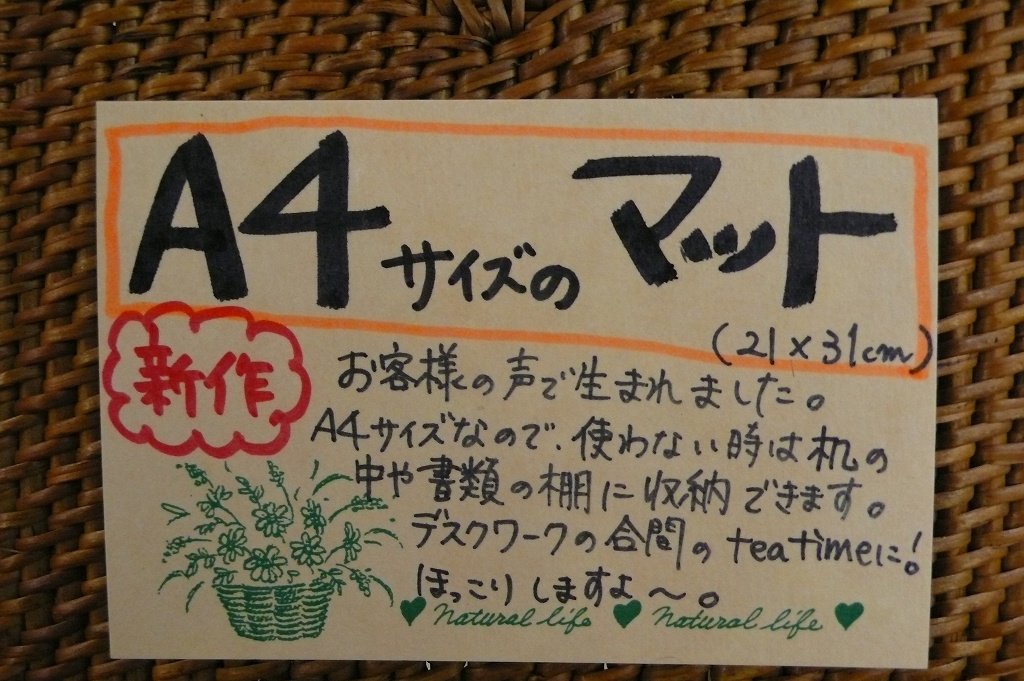 A4サイズのマット
(21×31cm)
新作
お客様の声で生まれました。
A4サイズなので、使わない時は机の
中や書類の棚に収納できます。
デスクワークの合間のteatimeに!
ほっこりしますよ〜。
Natural life Natural life